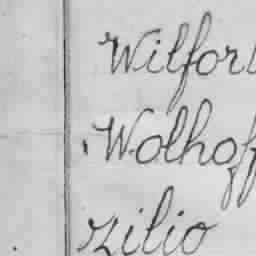 Wilfor
Wolhof
zilio